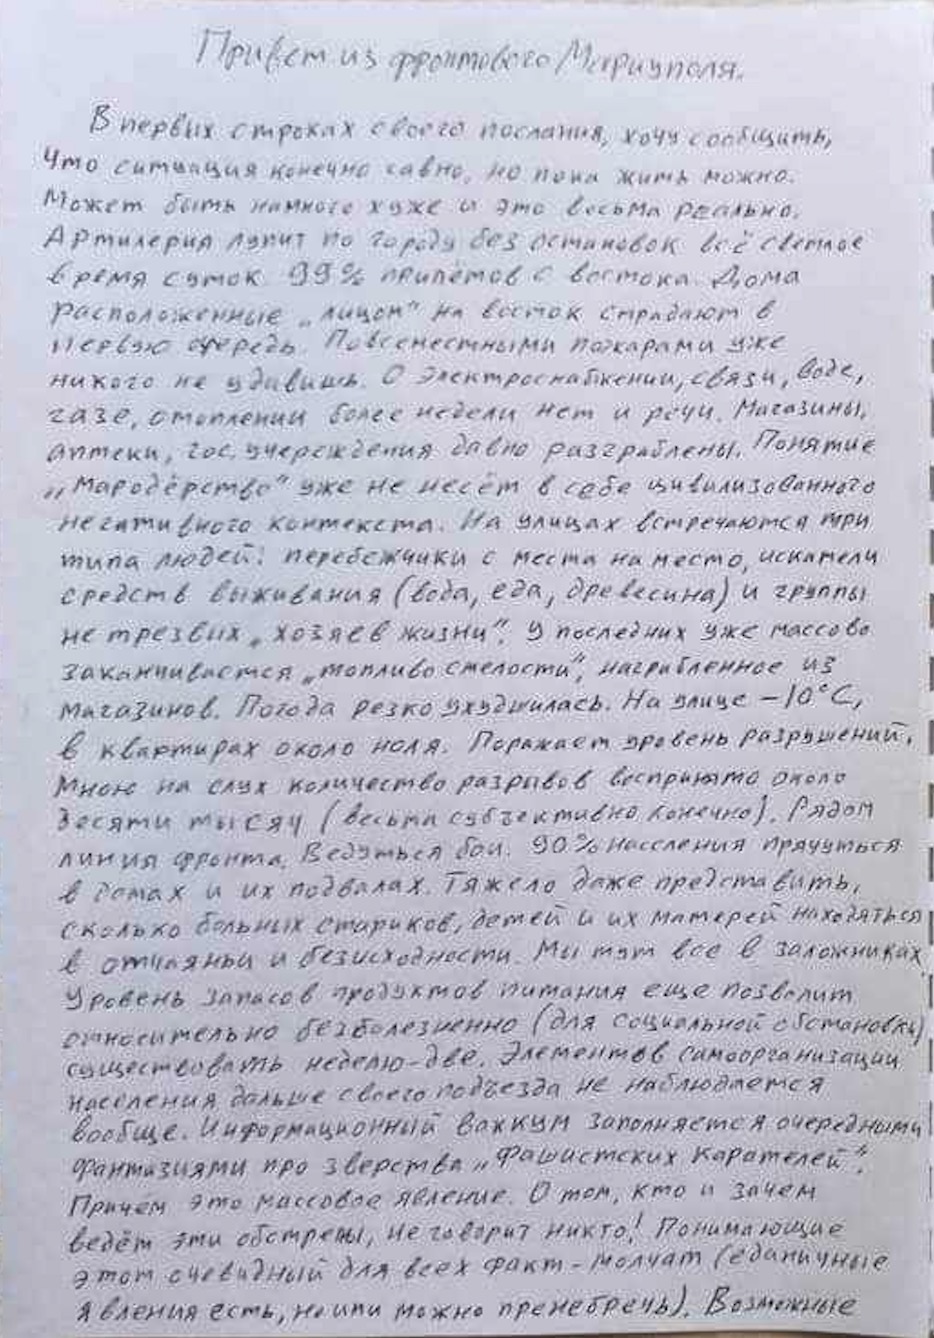 Привет из фронтового Мариуполя.
В первых строках своего послания, хочу сообщить,
что ситуация конечно гавно, но пока жить можно.
Может быть намного хуже и это весьма реально.
Артилерия лупит по городу без остановок всё светлое
время суток. 99% прилётов с востока. Дома
расположенные „лицом" на восток страдают в
первую очередь. Повсеместными пожарами уже
никого не удивишь. О электроснабжении, связи, воде,
газе, отоплении более недели нет и речи. Магазины,
аптеки, гос. учереждения давно разграблены. Понятие
„Мародёрство" уже не несёт в себе цивилизованного
негативного контекста. На улицах встречаются три
типа людей: перебежчики с места на место, искатели
средств выживания (вода, еда, древесина) и группы
не трезвых „хозяев жизни". У последних уже массово
заканчивается „топливо смелости", награбленное из
магазинов. Погода резко ухудшилась. На улице -10°С,
в квартирах около ноля. Поражает уровень разрушений.
Мною на слух количество разрывов воспринято около
десяти тысяч (весьма субъективно конечно). Рядом
линия фронта. Ведуться бои. 90% населения прячуться
в домах и их подвалах. Тяжело даже представить,
сколько больных стариков, детей и их матерей находяться
в отчаяньи и безисходности. Мы тут все в заложниках.
Уровень запасов продуктов питания еще позволит
относительно безболезненно (для социальной обстановки)
существовать неделю-две. Элементов самоорганизации
населения дальше своего подъезда не наблюдается
вообще. Информационный вакуум заполняется очередными
фантазиями про зверства „Фашистских Карателей".
Причём это массовое явление. О том, кто и зачем
ведёт эти обстрелы, не говорит никто! Понимающие
этот очевидный для всех факт - молчат (еданичные
явления есть, но ими можно пренебречь). Возможные